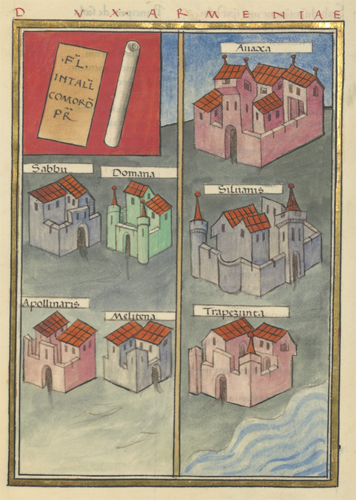 DVX ARMENIAE
·FL·
INTALL
COMORD
PR
Auaxa
Sabbu
Domana
Siluanis
Apollinaris
Melitena
Trapezunta